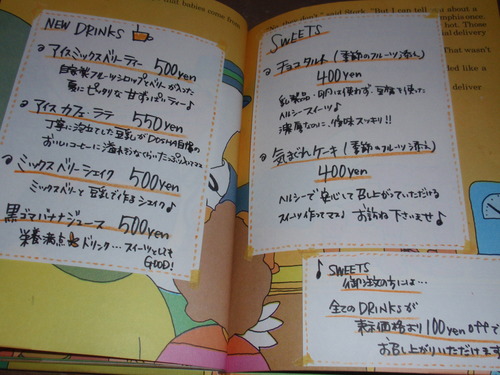 that babies come from
NEW DRINKS
アイスミックスベリーティー 500yen
自家製フルーツシロップとベリーが入った
夏にピッタリな甘ずっぱティー♪
アイスカフェ・ラテ 550yen
丁寧に泡立てした豆乳が
おいしいコーヒーに
ミックスベリーシェイク 500yen
ミックスベリーと豆乳で作るシェイク♪
黒ゴマバナナジュース 500yen
栄養満点ドリンク…スイーツとしても
GOOD!
"But I can tell about a
SWEETS
チョコタルト(季節のフルーツ添え)
400yen
乳製品・卵は使わず、豆腐を使った
ヘルシースイーツ♪
濃厚なのに、後味スッキリ!!
気まぐれケーキ(季節のフルーツ添え)
400yen
ヘルシーで安心して召し上がっていただける
スイーツ作ってます♪お訪ね下さいませ♪
♪ SWEETS
御注文の方には…
全てのDRINKSが
表示価格より100yen offで
お召し上がりいただけます